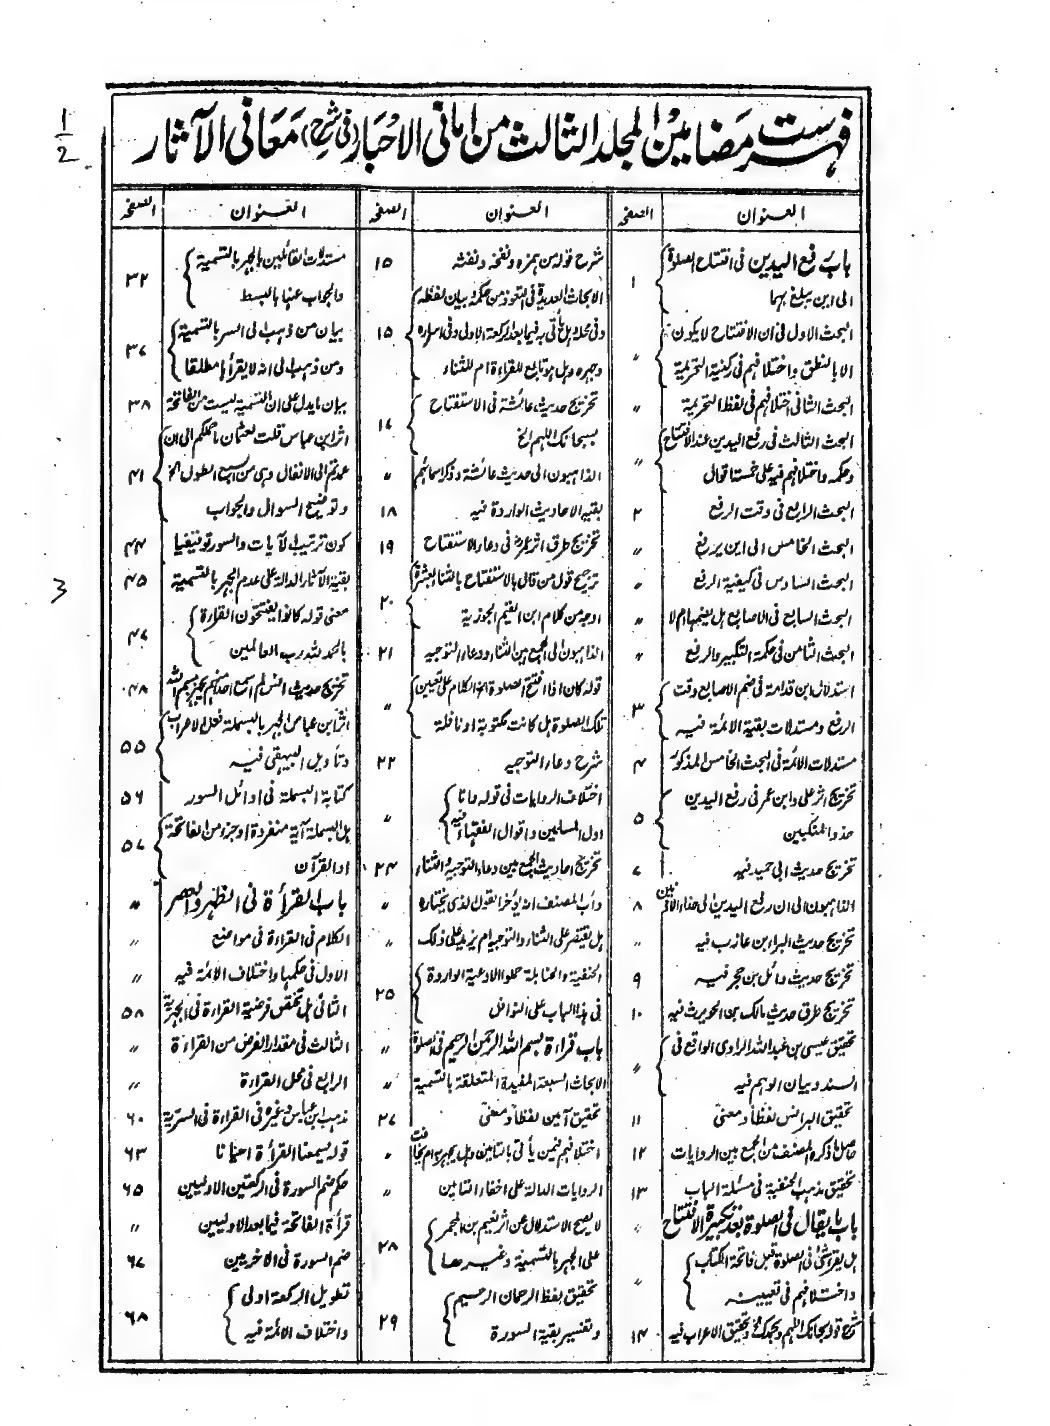 1/2
3
فهرست مضامين المجلد الثالث من امانى الاحبار (فى شرح) معانى الآثار
العنوان الصفحه
باب رفع اليدين فى افتتاح الصلوة
الى اين يبلغ بهما ١
البحث الاول فى ان الافتتاح لا يكون
الا بالنطق واختلافهم فى ركنية التحريمة 〃
البحث الثانى اختلافهم فى لفظ التحريمة 〃
البحث الثالث فى رفع اليدين عند الافتتاح
وحكمه واختلافهم فيه على خمسة اقوال 〃
البحث الرابع فى وقت الرفع ٢
البحث الخامس الى اين يرفع 〃
البحث السادس فى كيفية الرفع 〃
البحث السابع فى الاصابع هل يضمها ام لا 〃
البحث الثامن فى حكمة التكبير والرفع 〃
استدلال ابن قدامة فى ضم الاصابع وقت
الرفع ومستدلات بقية الائمة فيه ٣
مستدلات الائمة فى البحث الخامس المذكور ٤
تخريج اثر على وابن عمر فى رفع اليدين
حذو المنكبين ٥
تخريج حديث ابى حميد فيه ٧
الذاهبون الى ان رفع اليدين الى حذاء الاذنين ٨
تخريج حديث البراء بن عازب فيه 〃
تخريج حديث وائل بن حجر فيه ٩
تخريج طرق حديث مالك بن الحويرث فيه ١٠
تحقيق عيسى بن عبدالله الراوى الواقع فى
السند وبيان الوهم فيه 〃
تحقيق البرانس لفظاً ومعنىً ١١
حاصل ما ذكره المصنف من الجمع بين الروايات ١٢
تحقيق مذهب الحنفية فى مسئلة الباب ١٣
باب ما يقال فى الصلوة بعد تكبيرة الافتتاح 〃
هل يقرأ شئ فى الصلوة قبل فاتحة الكتاب
واختلافهم فى تعيينه 〃
شرح قوله سبحانك اللهم وبحمدك وتحقيق الاعراب فيه ١٤
العنوان الصفحه
شرح قوله من همزه ونفخه ونفثه ١٥
الابحاث العديدة فى التعوذ من حكمه وبيان لفظه
وفى محله وهل يأتى به فيما بعد الركعة الاولى وفى اسراره
وجهره وهل هو تابع للقراءة ام للثناء ١٥
تخريج حديث عائشة فى الاستفتاح
بسبحانك اللهم الخ ١٧
الذاهبون الى حديث عائشة وذكر اسمائهم 〃
بقية الاحاديث الواردة فيه ١٨
تخريج طرق اثر عمر فى دعاء الاستفتاح ١٩
ترجيح قول من قال بالاستفتاح بالثناء لعشرة
اوجه من كلام ابن القيم الجوزية ٢٠
الذاهبون الى الجمع بين الثناء ودعاء التوجيه ٢١
قوله كان اذا افتتح الصلوة الخ الكلام على تعيين
تلك الصلوة هل كانت مكتوبة او نافلة 〃
شرح دعاء التوجيه ٢٢
اختلاف الروايات فى قوله وانا
اول المسلمين واقوال الفقهاء فيه 〃
تخريج احاديث الجمع بين دعاء التوجيه والثناء ٢٤
دأب المصنف انه يؤخر القول الذى يختاره 〃
هل يقتصر على الثناء والتوجيه ام يزيد على ذلك 〃
الحنفية والحنابلة حملوا الادعية الواردة
فى هذا الباب على النوافل ٢٥
باب قراءة بسم الله الرحمن الرحيم فى الصلوة 〃
الابحاث السبعة المفيدة المتعلقة بالتسمية 〃
تحقيق آمين لفظاً ومعنىً ٢٧
اختلافهم فيمن يأتى بالتامين وهل يجهر به ام يخافت 〃
الروايات الدالة على اخفاء التامين 〃
لا يصح الاستدلال عن اثر نعيم بن المجمر
على الجهر بالتسمية وغيرها ٢٨
تحقيق لفظ الرحمان الرحيم
وتفسير بقية السورة ٢٩
العنوان الصفحه
مستدلات القائلين بالجهر بالتسمية
والجواب عنها بالبسط ٣٢
بيان من ذهب الى السر بالتسمية
ومن ذهب الى انه لا يقرأ بها مطلقا ٣٧
بيان ما يدل على ان التسمية ليست من الفاتحة ٣٨
اثر ابن عباس قلت لعثمان ما حملكم الى ان
عمدتم الى الانفال وهى من السبع الطول الخ
وتوضيح السوال والجواب ٤١
كون ترتيب الآيات والسور توقيفيا ٤٤
بقية الآثار الدالة على عدم الجهر بالتسمية ٤٥
معنى قوله كانوا يفتتحون القراءة
بالحمد لله رب العالمين ٤٧
تخريج حديث انس لم اسمع احدا منهم يجهر ببسم الله ٤٨
اثر ابن عباس الجهر بالبسملة فعل الاعراب
وتأويل البيهقى فيه ٥٥
كتابة البسملة فى اوائل السور ٥٦
هل البسملة آية منفردة او جزء من الفاتحة
او القرآن ٥٧
باب القرأة فى الظهر والعصر 〃
الكلام فى القراءة فى مواضع 〃
الاول فى حكمها واختلاف الائمة فيه 〃
الثانى هل تختص فرضية القراءة فى الجهرية ٥٨
الثالث فى مقدار الفرض من القراءة 〃
الرابع فى محل القراءة 〃
مذهب ابن عباس وغيره فى القراءة فى السرية ٦٠
قوله يسمعنا القرأة احيانا ٦٣
حكم ضم السورة فى الركعتين الاوليين ٦٥
قرأة الفاتحة فيما بعد الاوليين 〃
ضم السورة فى الاخريين ٦٧
تطويل الركعة اولى
واختلاف الائمة فيه ٦٨